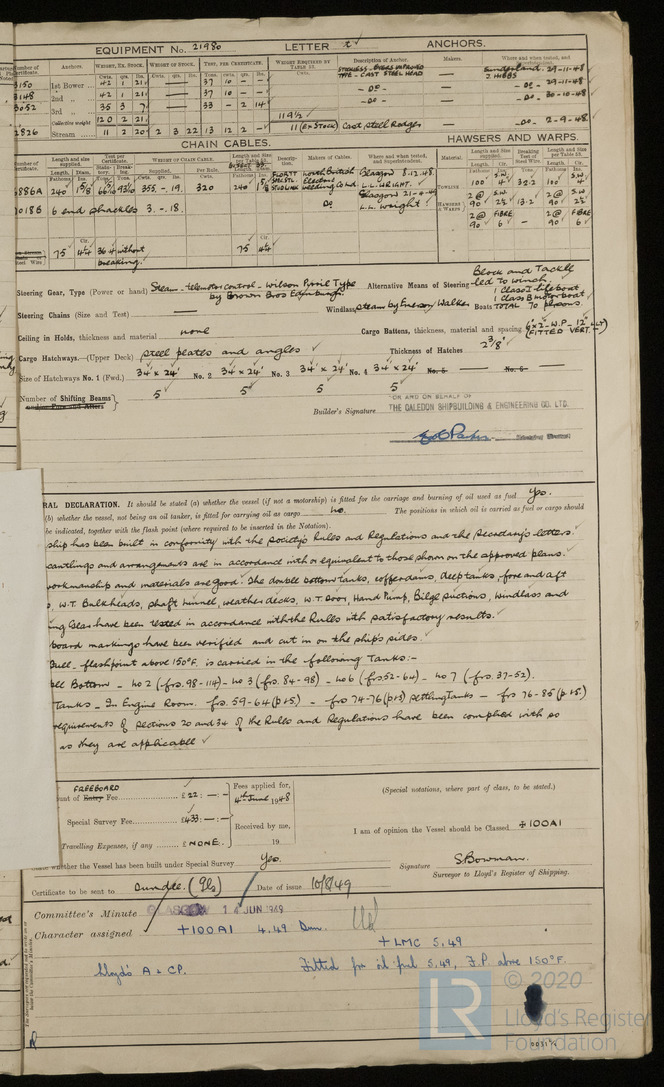 EQUIPMENT No. 21980 LETTER ANCHORS.
Anchors. WEIGHT, EX. STOCK. WEIGHT OF STOCK. TEST, PER CERTIFICATE. WEIGHT REQUIRED BY TABLE 53. Description of Anchor. Makers. Where and when tested,
Cwts. qrs. lbs. Cwts. qrs. lbs. Tons. cwts. qrs. lbs. Cwts. STOCKLESS BYERS IMPROVED TYPE - CAST STEEL HEAD Sunderland. 29-11-48
3150 1st Bower 42 1 21 37 10 J. HIBBS
8148 2nd 42 1 21 37 10 -DO- -DO- 29-11-48
3052 3rd 35 3 7 33 - 2 14 -DO- -DO- 30-10-48
Collective weight 120 2 21 119½
2826 Stream 11 2 20 2 3 22 13 12 2 - 11 (Ex Stock) Cast Steel Rodgers -DO- 2-9-48
CHAIN CABLES. HAWSERS AND WARPS.
Length and size supplied. Test per Certificate. WEIGHT OF CHAIN CABLE. Length and Size per Table 53. Description. Makers of Cables. Where and when tested, and Superintendent. Material. Length and size supplied. Breaking Test of Steel Wire. Length and Size per Table 53.
Fathoms Diam. Supplied. Per Rule. Fathoms Diam. Fathoms Cir. Tons. Fathoms Cir.
6886A 240 1 5/8 66 93 355 - 19. 320 240 North British Electric Welding Co Ltd. Glasgow 8.12.48. L.L. WRIGHT. TOWLINE 100 4 32.2 100 4
1018B 6 end shackles 3. - .18. Do L.L. Wright HAWSERS & WARPS 2@ 90 2½ 13.2 2@ 90 2½
2@ FIBRE 90 6 - 2@ FIBRE 90 6
75 4¼ 36.4 without breaking. 75 4¼
Steering Gear, Type (Power or hand) Steam - telemotor control - Wilson Pirrie Type by Brown Bros Edinburgh. Alternative Means of Steering Block and Tackle led to winch
Steering Chains (Size and Test) Windlass steam by Emerson Walker Boats 1 Class I lifeboat 1 Class B motor boat TOTAL 70 persons.
Ceiling in Holds, thickness and material none Cargo Battens, thickness, material and spacing 6"x2" W.P. 12" (FITTED VERT.LY)
Cargo Hatchways.—(Upper Deck) steel plates and angles Thickness of Hatches 2 3/8"
Size of Hatchways No. 1 (Fwd.) 34' x 24' No. 2 34' x 24' No. 3 34' x 24' No. 4 34' x 24' No. 5 No. 6
Number of Shifting Beams 5 5 5 5
and/or Fore and Afters
FOR AND ON BEHALF OF
Builder's Signature THE CALEDON SHIPBUILDING & ENGINEERING CO. LTD.
RAL DECLARATION. It should be stated (a) whether the vessel (if not a motorship) is fitted for the carriage and burning of oil used as fuel Yes.
(b) whether the vessel, not being an oil tanker, is fitted for carrying oil as cargo No. The positions in which oil is carried as fuel or cargo should
be indicated, together with the flash point (where required to be inserted in the Notation).
ship has been built in conformity with the Society's Rules and Regulations and the Secretary's letters.
cantlings and arrangements are in accordance with or equivalent to those shown on the approved plans.
workmanship and materials are good. The double bottom tanks, cofferdams, deep tanks, fore and aft
s, W.T. Bulkheads, shaft tunnel, weather decks, W.T. Door, Hand Pump, Bilge suctions, windlass and
ing Gear have been tested in accordance with the Rules with satisfactory results.
board markings have been verified and cut in on the ship's sides.
Fuel - flashpoint above 150°F. is carried in the following Tanks:-
ble Bottom - No 2 (frs. 98-114) - No 3 (frs. 84-98) - No 6 (frs. 52-64) - No 7 (frs. 37-52).
Tanks - In Engine Room. frs. 59-64 (p+s) - frs 74-76 (p+s) settling Tanks - frs 76-85 (p+s.)
requirements of Sections 20 and 34 of the Rules and Regulations have been complied with so
as they are applicable
FREEBOARD
unt of Entry Fee £22:—:— Fees applied for, 4th June 1948 (Special notations, where part of class, to be stated.)
Special Survey Fee £433:—:— Received by me, I am of opinion the Vessel should be Classed ✠100A1
Travelling Expenses, if any £NONE: 19
whether the Vessel has been built under Special Survey Yes. Signature S. Bowman.
Surveyor to Lloyd's Register of Shipping.
Certificate to be sent to Dundee. (Gls) Date of issue 10/8/49
Committee's Minute GLASGOW 14 JUN 1949
Character assigned +100A1 4.49 Dun.
+ LMC 5.49
Lloyd's A & CP. Fitted for oil fuel 5.49, F.P. above 150°F.
© 2020
LR Lloyd's Register
Foundation